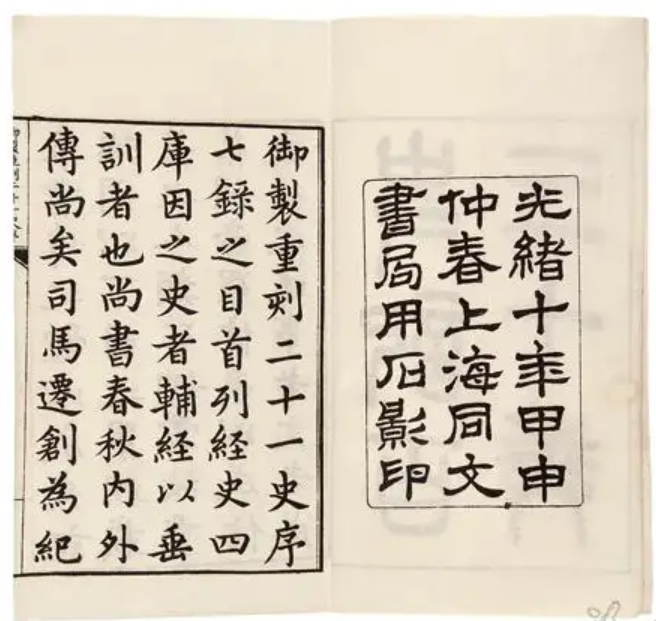 光緒十年甲申
仲春上海同文
書局用石影印
御製重刻二十一史序
七錄之目首列經史四
庫因之史者輔經以垂
訓者也尚書春秋內外
傳尚矣司馬遷創為紀